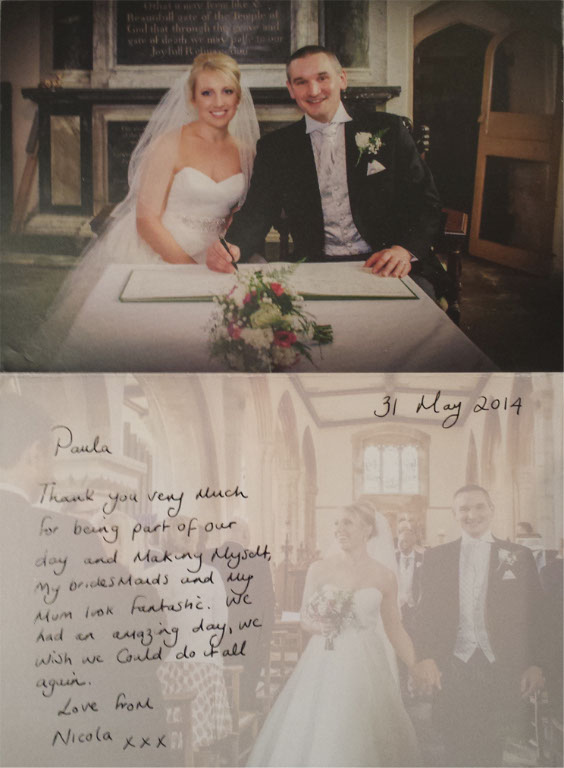 Beautifull gate of the Temple of
God that through this grave and
gate of death we may to our
Joyfull
31 May 2014
Paula
Thank you very much
for being part of our
day and making myself,
my bridesmaids and my
mum look fantastic. We
had an amazing day, we
wish we could do it all
again.
Love from
Nicola xxx